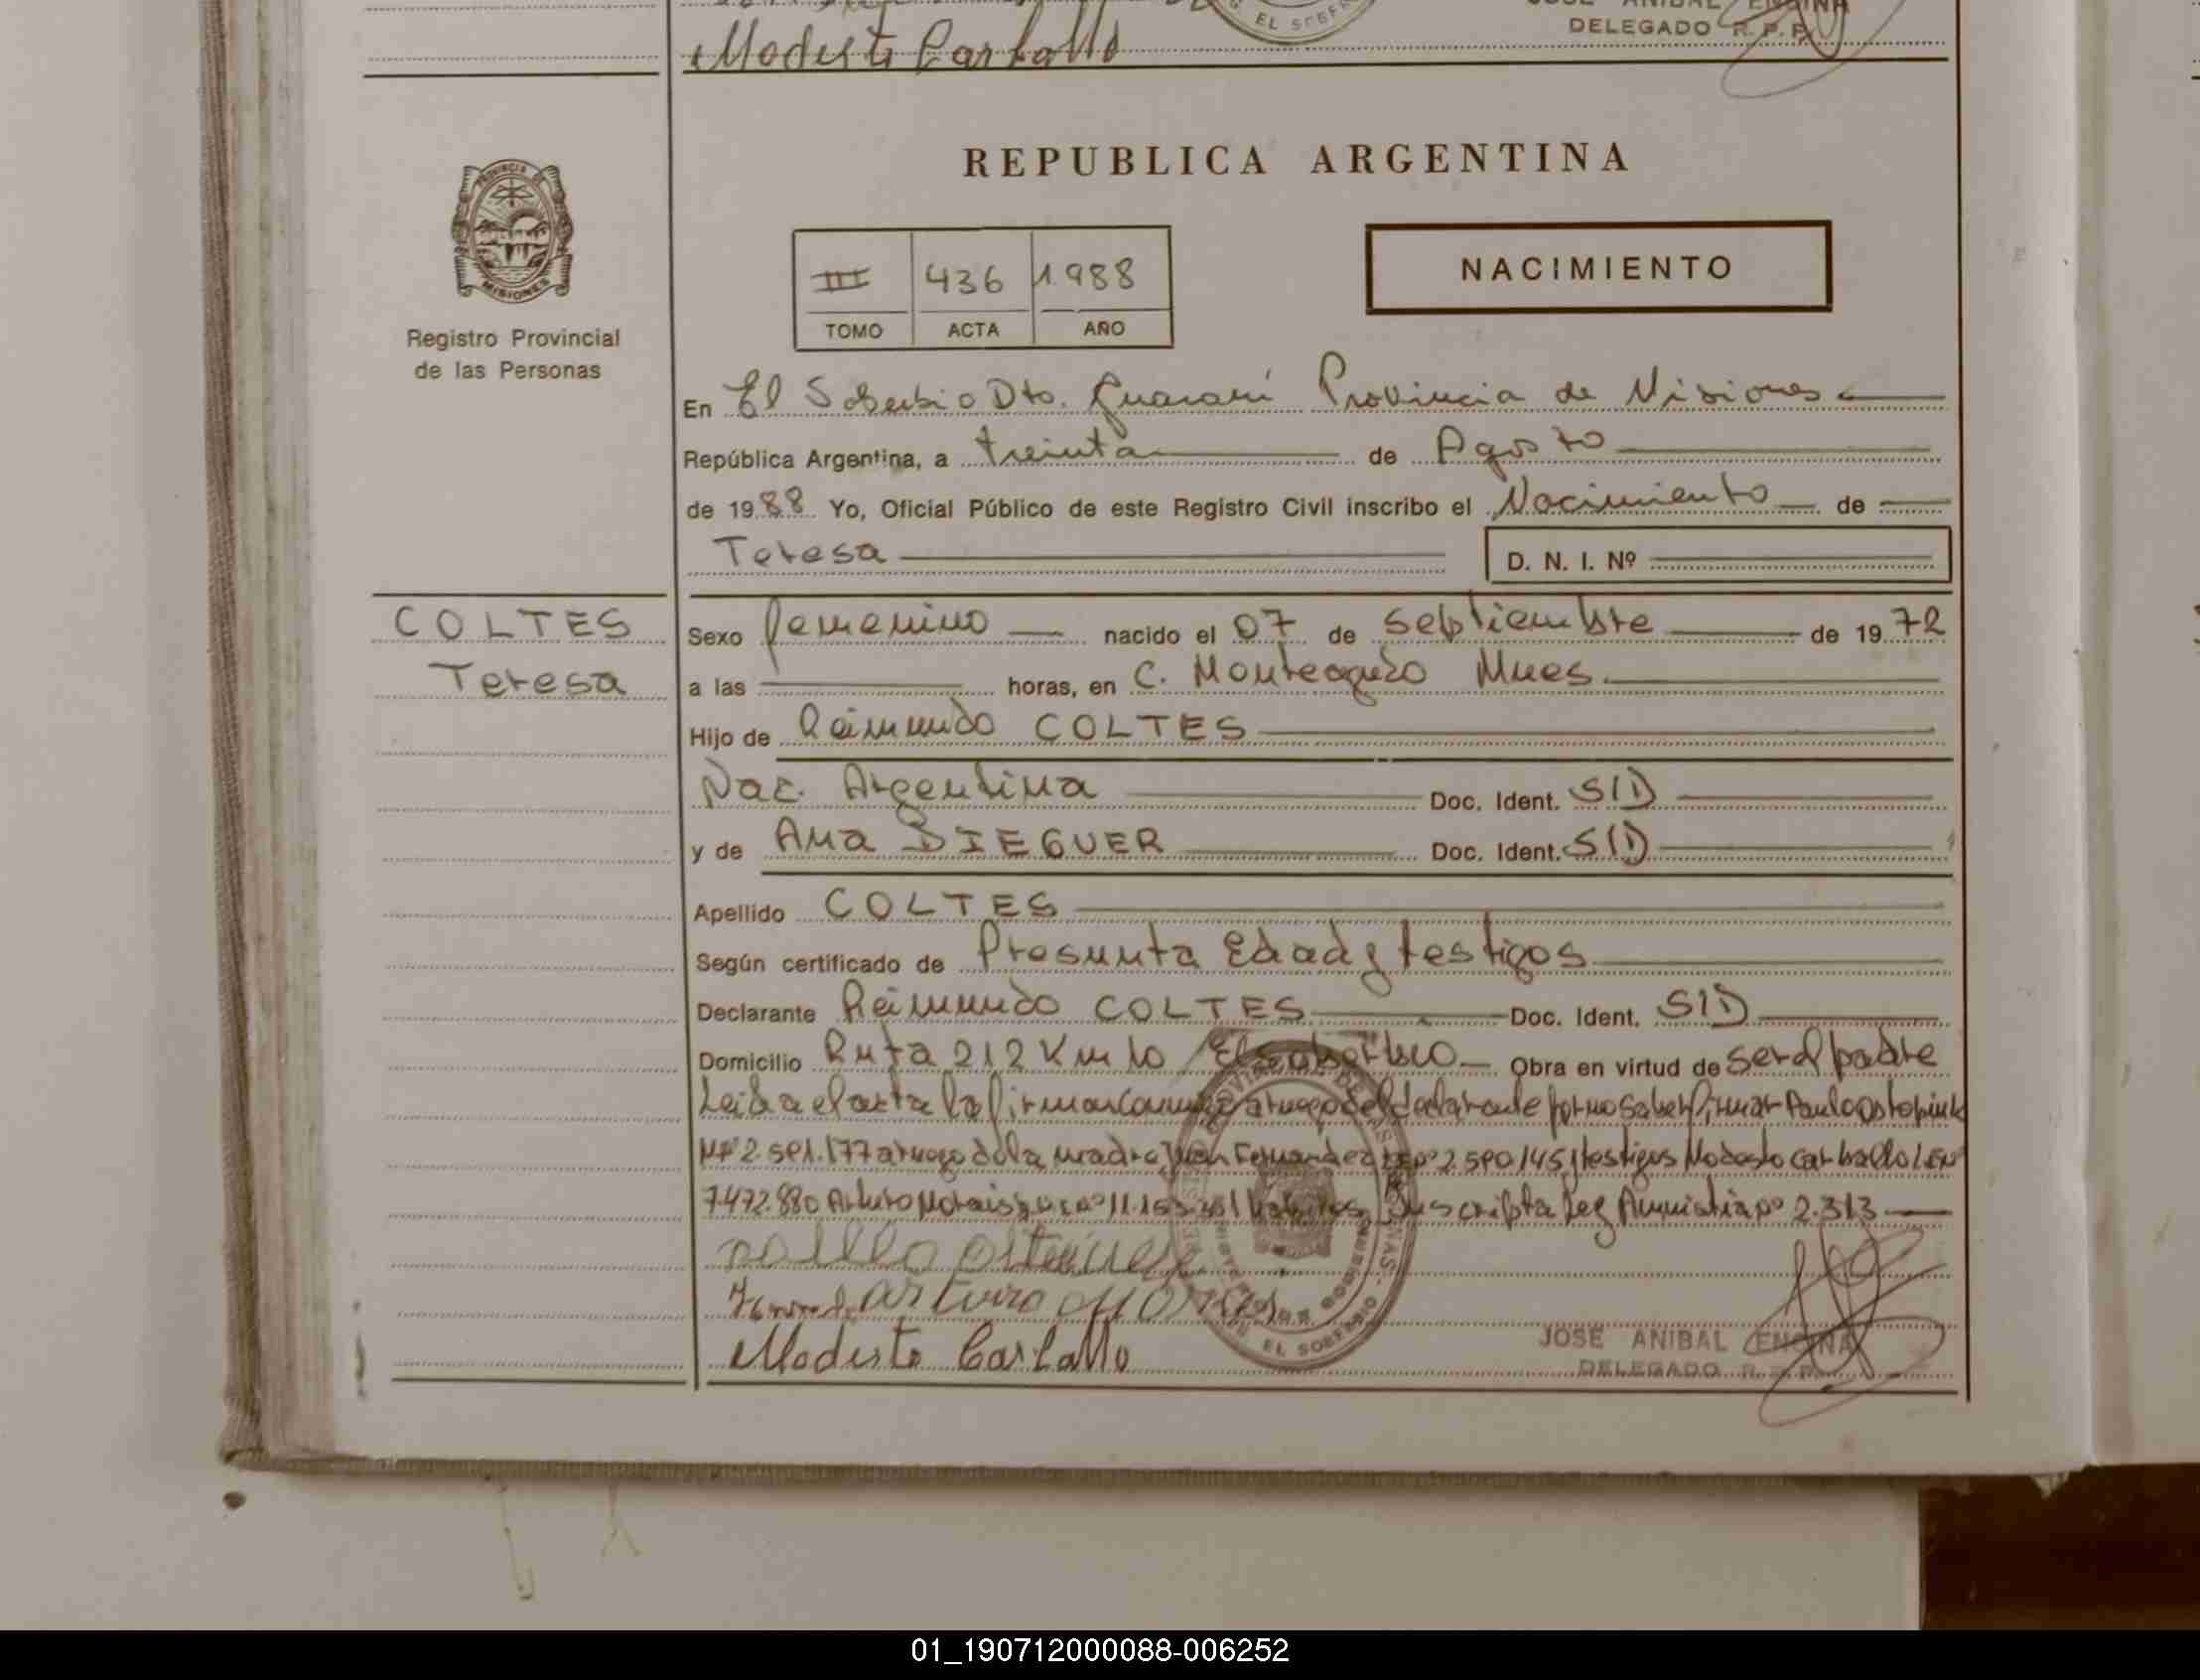 Modesto Carballo
JOSE ANIBAL ENCINA
DELEGADO R. P. P.
EL SOBERBIO
PROVINCIA DE
MISIONES
Registro Provincial
de las Personas
REPUBLICA ARGENTINA
III 436 1.988
TOMO ACTA AÑO
NACIMIENTO
En El Soberbio Dto. Guaraní Provincia de Misiones
República Argentina, a treinta de Agosto
de 1988 Yo, Oficial Público de este Registro Civil inscribo el Nacimiento de
Teresa D. N. I. Nº
COLTES
Teresa
Sexo femenino nacido el 07 de septiembre de 1972
a las horas, en C. Monteagudo Mnes.
Hijo de Reimundo COLTES
Nac. Argentina Doc. Ident. S/D
y de Ana DIEGUER Doc. Ident. S/D
Apellido COLTES
Según certificado de Presunta Edad y testigos
Declarante Reimundo COLTES Doc. Ident. S/D
Domicilio Ruta 212 Km 10 El soberbio Obra en virtud de ser el padre
Leida el acta la firman conmigo a ruego del declarante por no saber firmar Paulo
a ruego de la madre Juan Fernandez 2.590.145 testigos Modesto Carballo
7.472.880 Arturo Morais suscripta Ley Amnistia nº 2.313
arturo Morais
Modesto Carballo
EL SOBERBIO
JOSE ANIBAL ENCINA
DELEGADO R. P. P.
01_190712000088-006252